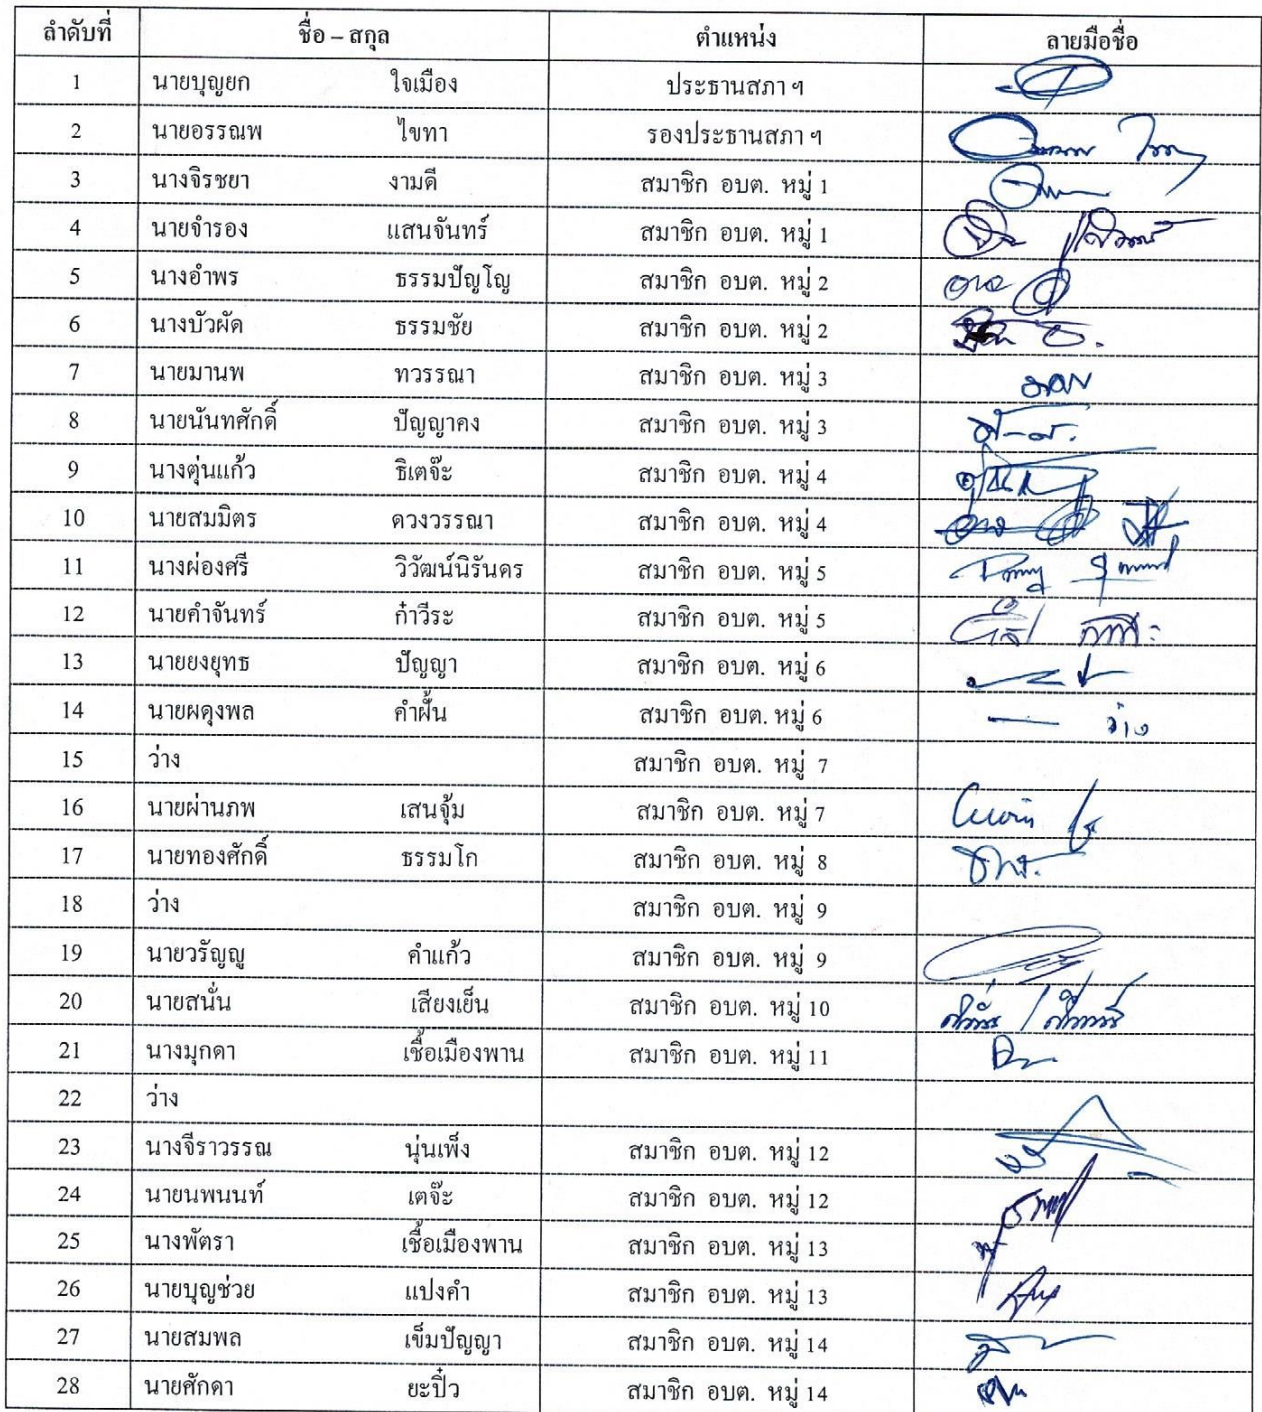 ลำดับที่ ชื่อ – สกุล ตำแหน่ง ลายมือชื่อ
1 นายบุญยก ใจเมือง ประธานสภา ฯ
2 นายอรรณพ ไขทา รองประธานสภา ฯ
3 นางจิรชยา งามดี สมาชิก อบต. หมู่ 1
4 นายจำรอง แสนจันทร์ สมาชิก อบต. หมู่ 1
5 นางอำพร ธรรมปัญโญ สมาชิก อบต. หมู่ 2
6 นางบัวผัด ธรรมชัย สมาชิก อบต. หมู่ 2
7 นายมานพ ทวรรณา สมาชิก อบต. หมู่ 3
8 นายนันทศักดิ์ ปัญญาคง สมาชิก อบต. หมู่ 3
9 นางตุ่นแก้ว ธิเตจ๊ะ สมาชิก อบต. หมู่ 4
10 นายสมมิตร ดวงวรรณา สมาชิก อบต. หมู่ 4
11 นางผ่องศรี วิวัฒน์นิรันดร สมาชิก อบต. หมู่ 5
12 นายคำจันทร์ ก๋าวีระ สมาชิก อบต. หมู่ 5
13 นายยงยุทธ ปัญญา สมาชิก อบต. หมู่ 6
14 นายผดุงพล คำฝั้น สมาชิก อบต. หมู่ 6 ว่าง
15 ว่าง สมาชิก อบต. หมู่ 7
16 นายผ่านภพ เสนจุ้ม สมาชิก อบต. หมู่ 7
17 นายทองศักดิ์ ธรรมโก สมาชิก อบต. หมู่ 8
18 ว่าง สมาชิก อบต. หมู่ 9
19 นายวรัญญู คำแก้ว สมาชิก อบต. หมู่ 9
20 นายสนั่น เสียงเย็น สมาชิก อบต. หมู่ 10
21 นางมุกดา เชื้อเมืองพาน สมาชิก อบต. หมู่ 11
22 ว่าง
23 นางจีราวรรณ นุ่นเพ็ง สมาชิก อบต. หมู่ 12
24 นายนพนนท์ เตจ๊ะ สมาชิก อบต. หมู่ 12
25 นางพัตรา เชื้อเมืองพาน สมาชิก อบต. หมู่ 13
26 นายบุญช่วย แปงคำ สมาชิก อบต. หมู่ 13
27 นายสมพล เข็มปัญญา สมาชิก อบต. หมู่ 14
28 นายศักดา ยะปิ๋ว สมาชิก อบต. หมู่ 14